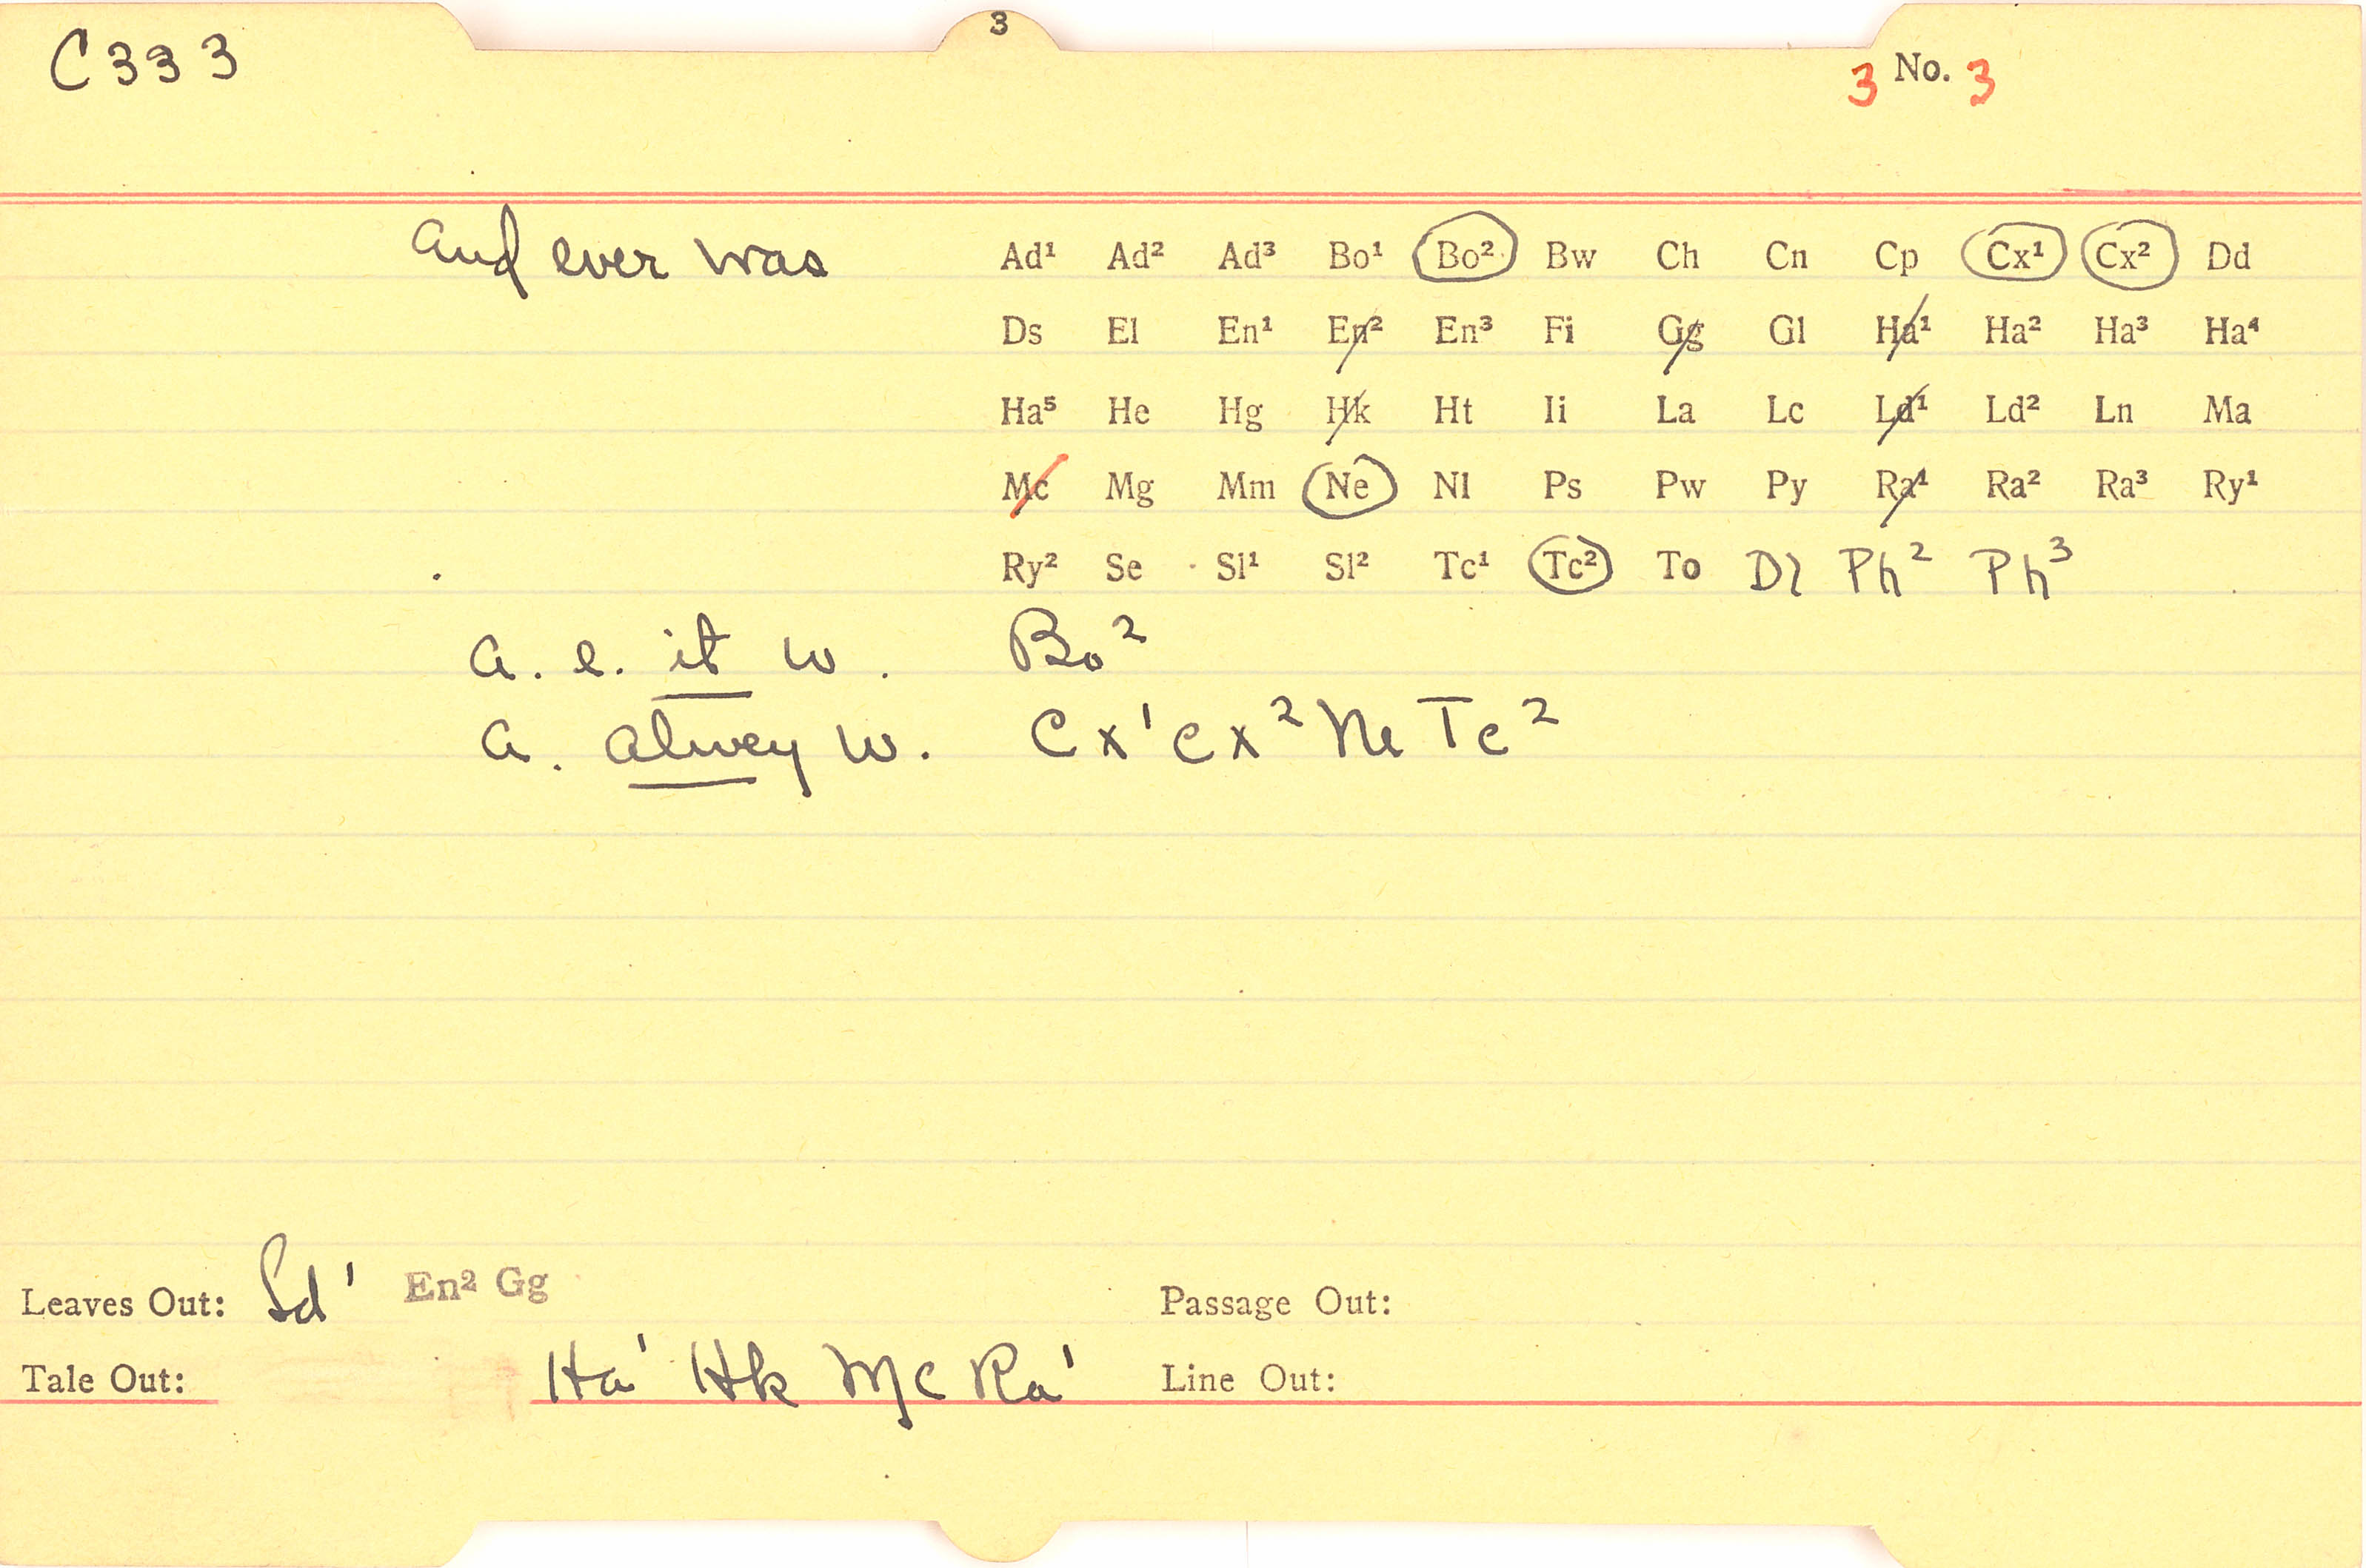 3
C333
3 No. 3
and ever was
Ad¹ Ad² Ad³ Bo¹ Bo² Bw Ch Cn Cp Cx¹ Cx² Dd
Ds El En¹ En² En³ Fi Gg Gl Ha¹ Ha² Ha³ Ha⁴
Ha⁵ He Hg Hk Ht Ii La Lc Ld¹ Ld² Ln Ma
Mc Mg Mm Ne Nl Ps Pw Py Ra¹ Ra² Ra³ Ry¹
Ry² Se Sl¹ Sl² Tc¹ Tc² To Dl Ph² Ph³
a. e. it w. Bo²
a. alwey w. Cx¹ Cx² Ne Tc²
Leaves Out: Ld¹ En² Gg
Passage Out:
Tale Out: Ha¹ Hk Mc Ra¹
Line Out: